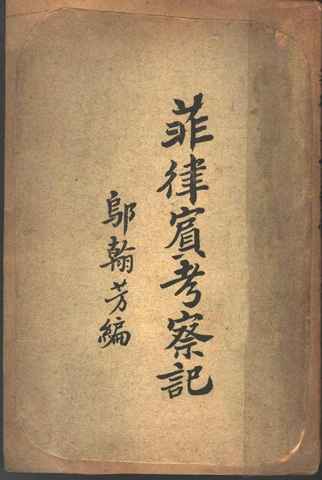 菲律賓考察記
鄔翰芳編